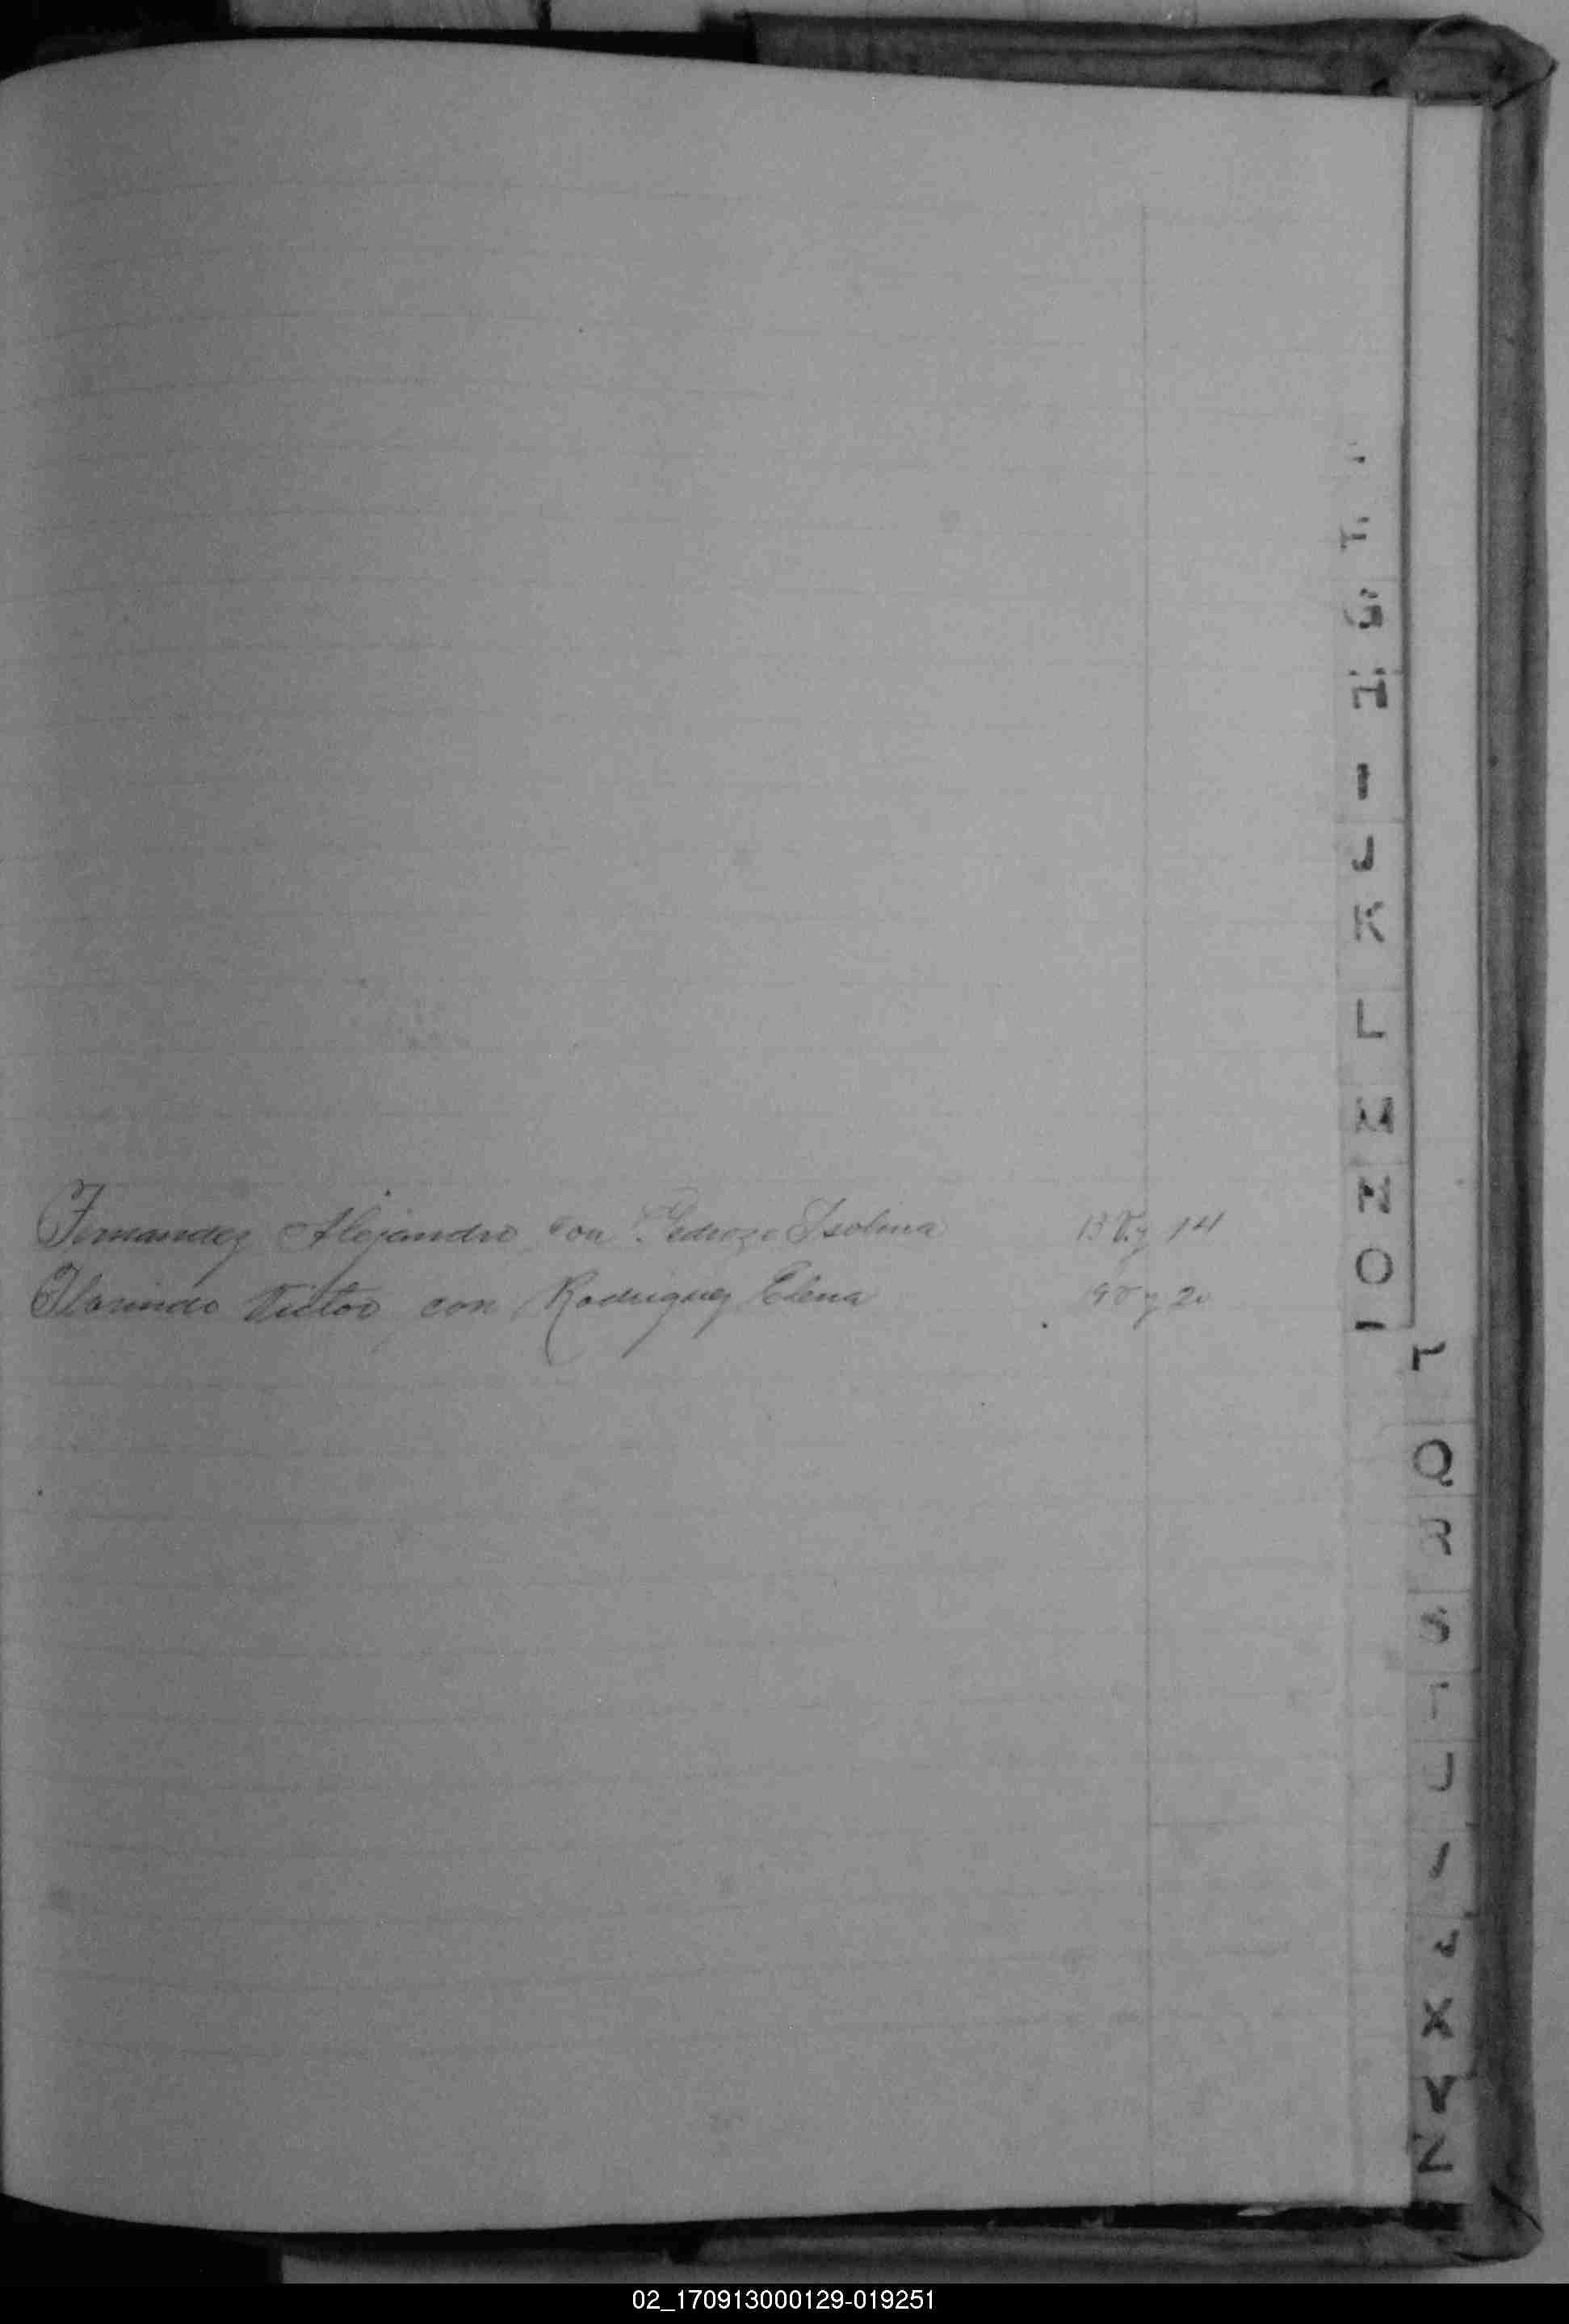 Fernandez Alejandro con Pedrozo Isolina 13 V. y 14
Florindo Victor con Rodriguez Elena 19 V y 20
F
G
H
I
J
K
L
M
N
O
Q
R
S
T
U
X
Y
Z
02_170913000129-019251